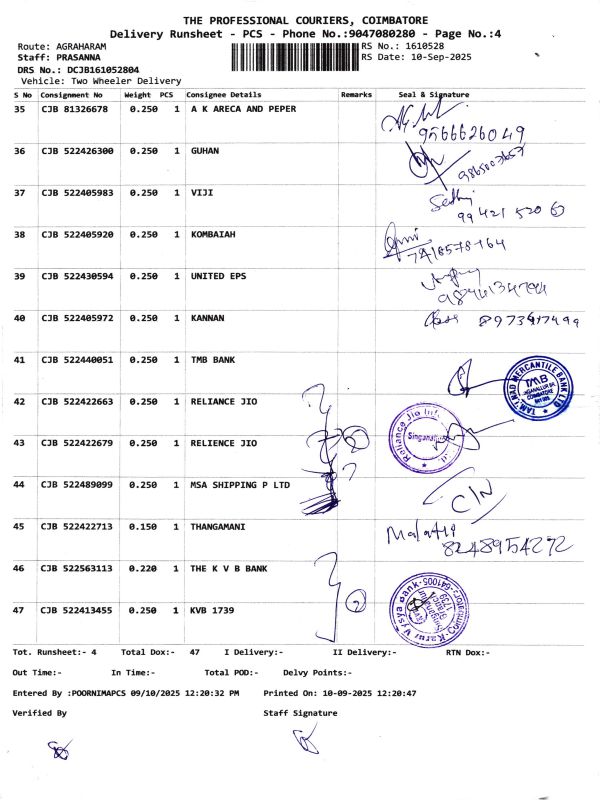 THE PROFESSIONAL COURIERS, COIMBATORE
Delivery Runsheet - PCS - Phone No.:9047080280 - Page No.:4
Route: AGRAHARAM RS No.: 1610528
Staff: PRASANNA RS Date: 10-Sep-2025
DRS No.: DCJB161052804
Vehicle: Two Wheeler Delivery
S No Consignment No Weight PCS Consignee Details Remarks Seal & Signature
35 CJB 81326678 0.250 1 A K ARECA AND PEPER
9566626049
36 CJB 522426300 0.250 1 GUHAN
37 CJB 522405983 0.250 1 VIJI
38 CJB 522405920 0.250 1 KOMBAIAH
39 CJB 522430594 0.250 1 UNITED EPS
40 CJB 522405972 0.250 1 KANNAN
41 CJB 522440051 0.250 1 TMB BANK TAMILNAD MERCANTILE BANK LTD TMB COIMBATORE
42 CJB 522422663 0.250 1 RELIANCE JIO
43 CJB 522422679 0.250 1 RELIENCE JIO Reliance Jio
44 CJB 522489099 0.250 1 MSA SHIPPING P LTD C/N
45 CJB 522422713 0.150 1 THANGAMANI Malathi
8248954272
46 CJB 522563113 0.220 1 THE K V B BANK
47 CJB 522413455 0.250 1 KVB 1739 Karur Vysya Bank 1739 Coimbatore-641005
Tot. Runsheet:- 4 Total Dox:- 47 I Delivery:- II Delivery:- RTN Dox:-
Out Time:- In Time:- Total POD:- Delvy Points:-
Entered By :POORNIMAPCS 09/10/2025 12:20:32 PM Printed On: 10-09-2025 12:20:47
Verified By Staff Signature